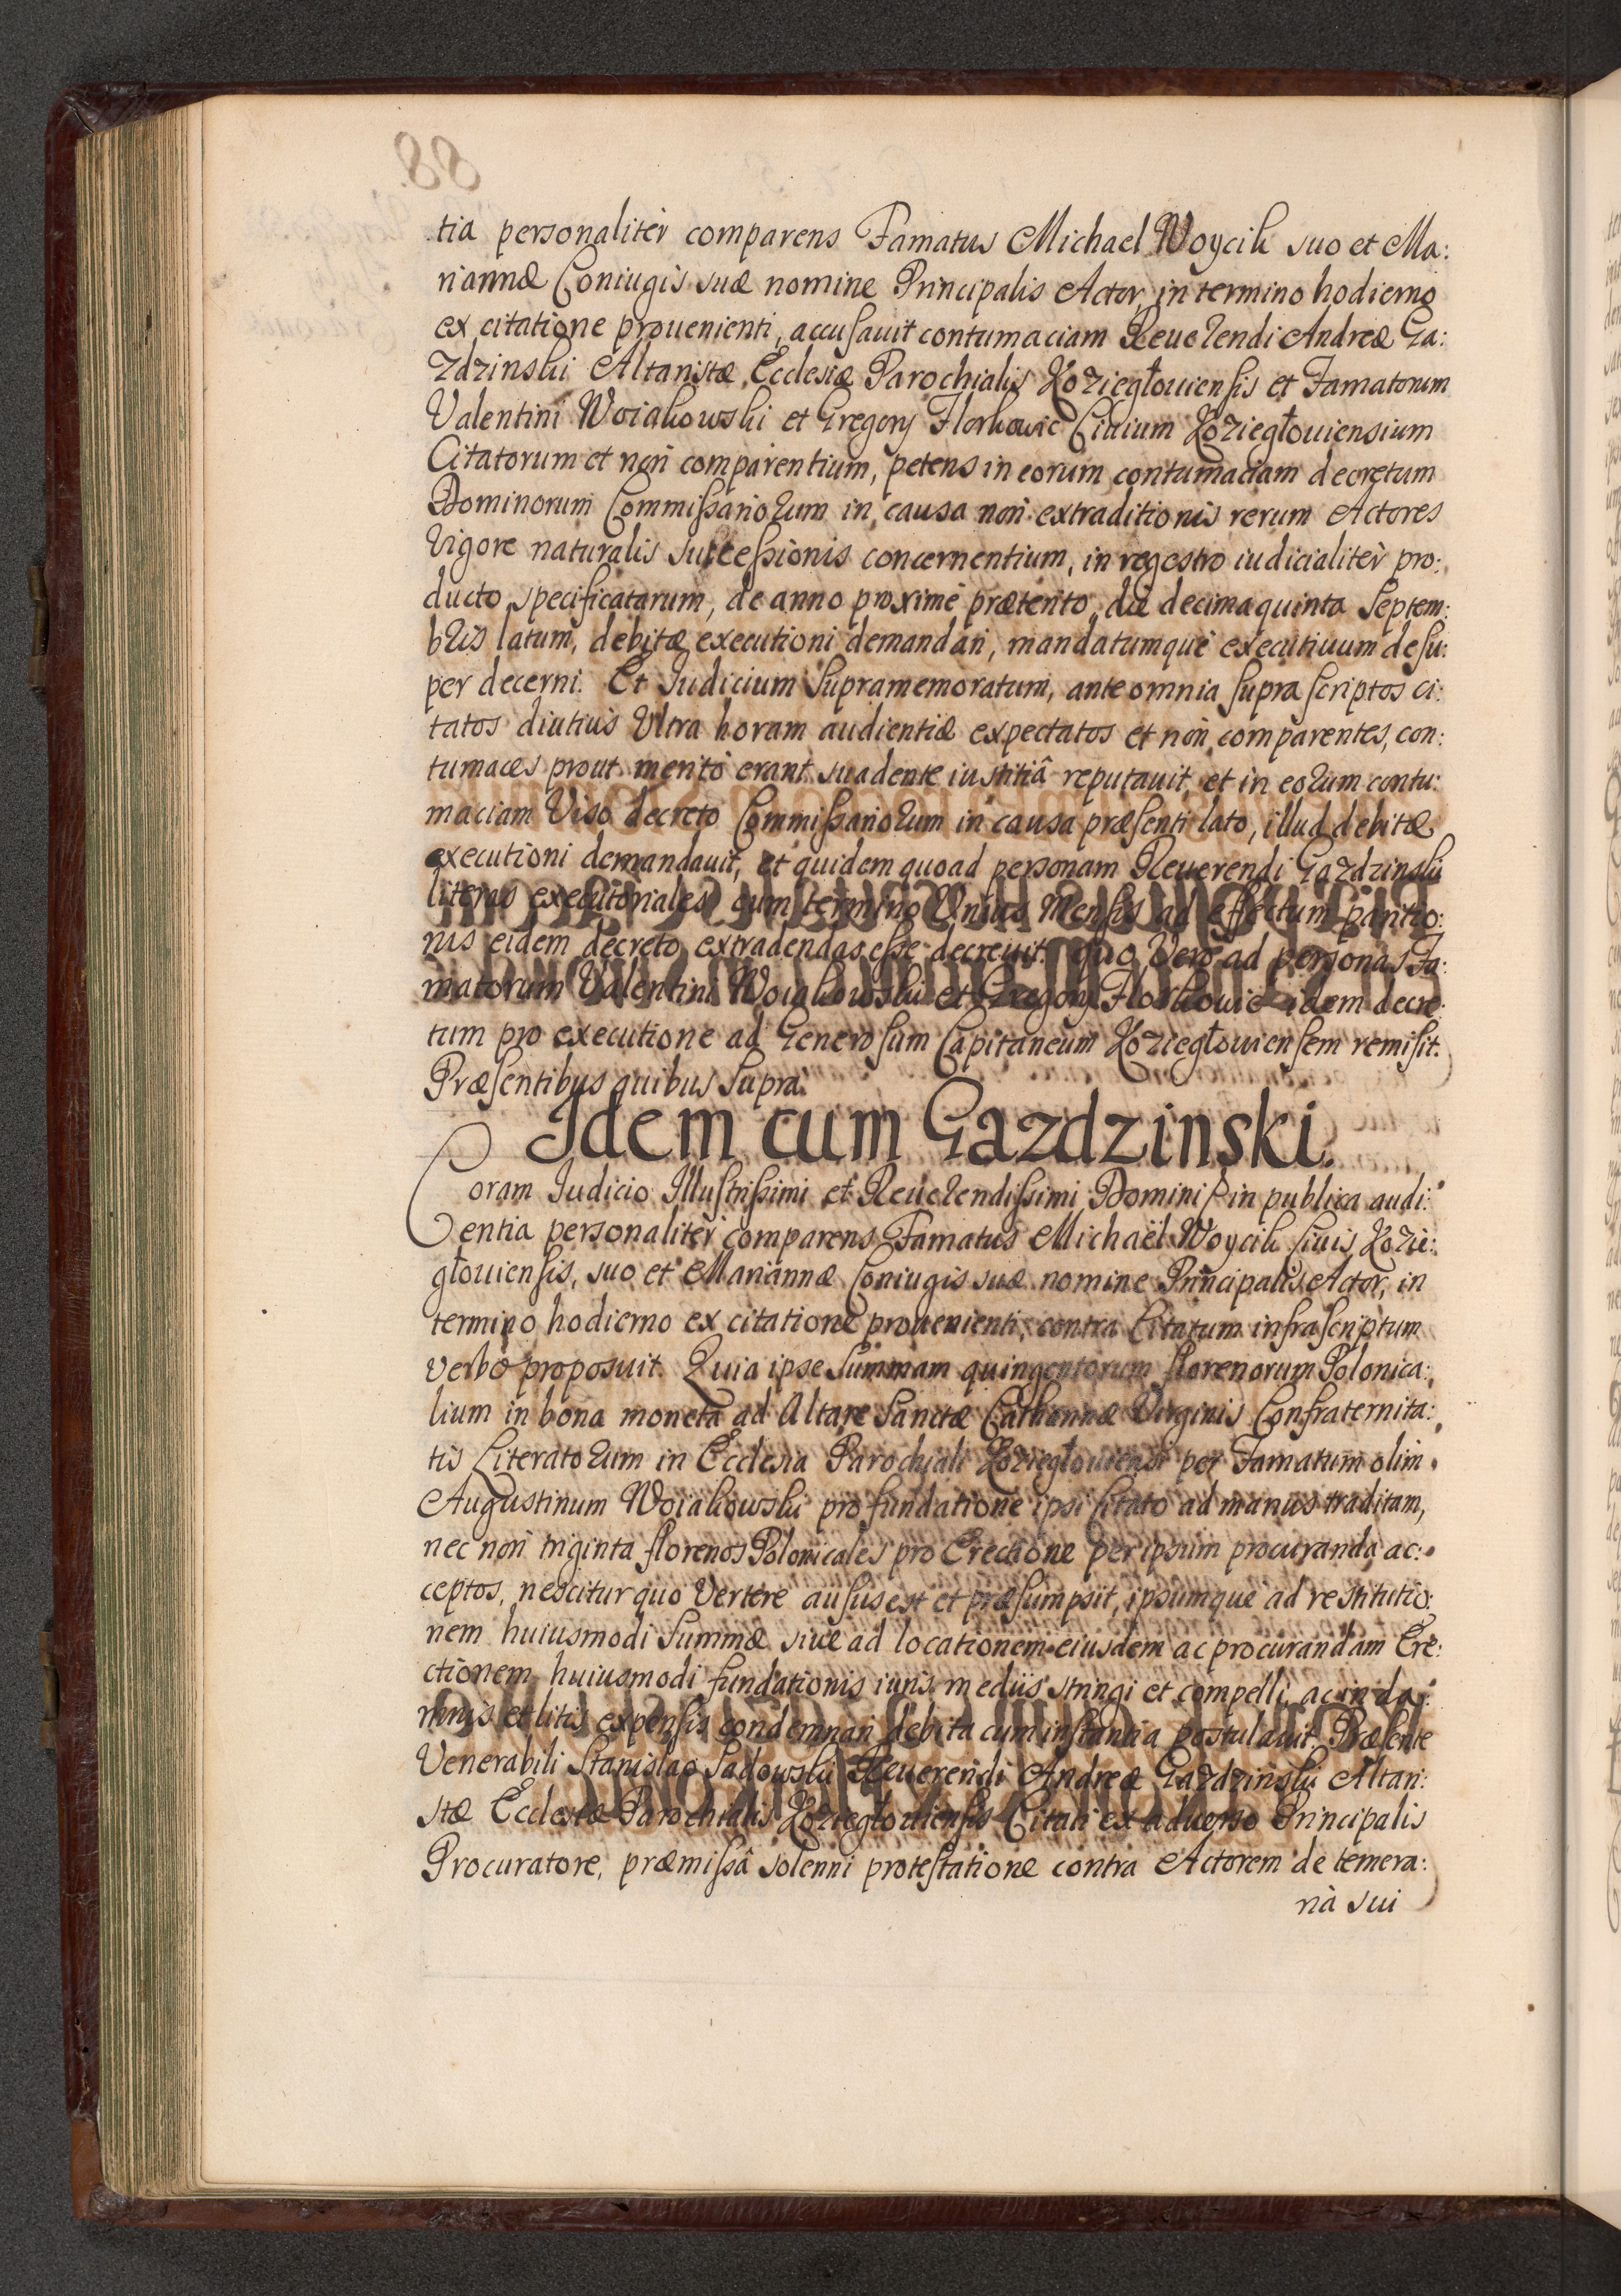 88
tia personalitèr comparens Famatus Michael Woycik suo et Ma:
riannæ Coniugis suæ nomine Principalis Actor, in termino hodierno
ex citatione prouenienti, accusauit contumaciam Reuerendi Andreæ Ga:
zdzinski Altaristæ Ecclesiæ Parochialis Koziegłouiensis et Famatorum
Valentini Woiakowski et Gregory Florkowic Ciuium Koziegłouiensium
Citatorum et non comparentium, petens in eorum contumaciam decretum
Dominorum Commissariorum in causa non extraditionis rerum Actores
Vigore naturalis successionis concernentium, in regestro iudicialitèr pro:
ducto specificatarum, de anno proximè præterito, die decima quinta Septem:
bris latum, debitæ executioni demandari, mandatumque executiuum desu:
per decerni. Et Iudicium Supramemoratum, ante omnia supra scriptos ci:
tatos diutius Vltra horam audientiæ expectatos et non comparentes, con:
tumaces prout meritò erant suadente iustitiâ reputauit, et in eorum contu:
maciam Viso decreto Commissariorum in causa præsenti lato, illud debitæ
executioni demandauit, et quidem quoad personam Reuerendi Gazdzinski
literas executoriales cum termino Vnius Mensis ad effectum paritio:
nis eidem decreto extradendas esse decreuit. quo Vero ad personas Fa:
matorum Valentini Woiakowski et Gregory Florkowic idem decre:
tum pro executione ad Generosum Capitaneum Koziegłouiensem remisit.
Præsentibus quibus Supra.
Idem cum Gazdzinski.
Coram Iudicio Illustrissimi et Reuerendissimi Domini in publica audi:
entia personalitèr comparens Famatus Michaël Woycik Ciuis Kozie:
głouiensis, suo et Mariannæ Coniugis suæ nomine Principalis Actor, in
termino hodierno ex citatione prouenienti, contra Citatum infrascriptum
verbo proposuit. Quia ipse Summam quingentorum florenorum Polonica:
lium in bona moneta ad Altare Sanctæ Catharinæ Virginis Confraternita:
tis Literatorum in Ecclesia Parochiali Koziegłouiensi per Famatum olim
Augustinum Woiakowski pro fundatione ipsi Citato ad manus traditam,
nec non triginta florenos Polonicales pro Erectione per ipsum procuranda ac:
ceptos, nescitur quo Vertere ausus est et præsumpsit, ipsumque ad restitutio:
nem huiusmodi Summæ siue ad locationem eiusdem ac procurandam Ere:
ctionem huiusmodi fundationis iuris mediis stringi et compelli, ac in da:
mnis et litis expensis condemnari debita cum instantia postulauit. Præsente
Venerabili Stanislao Sadowski Reuerendi Andreæ Gazdzinski Altari:
stæ Ecclesiæ Parochialis Koziegłouiensis Citati ex aduerso Principalis
Procuratore, præmissâ solenni protestatione contra Actorem de temera:
rià sui